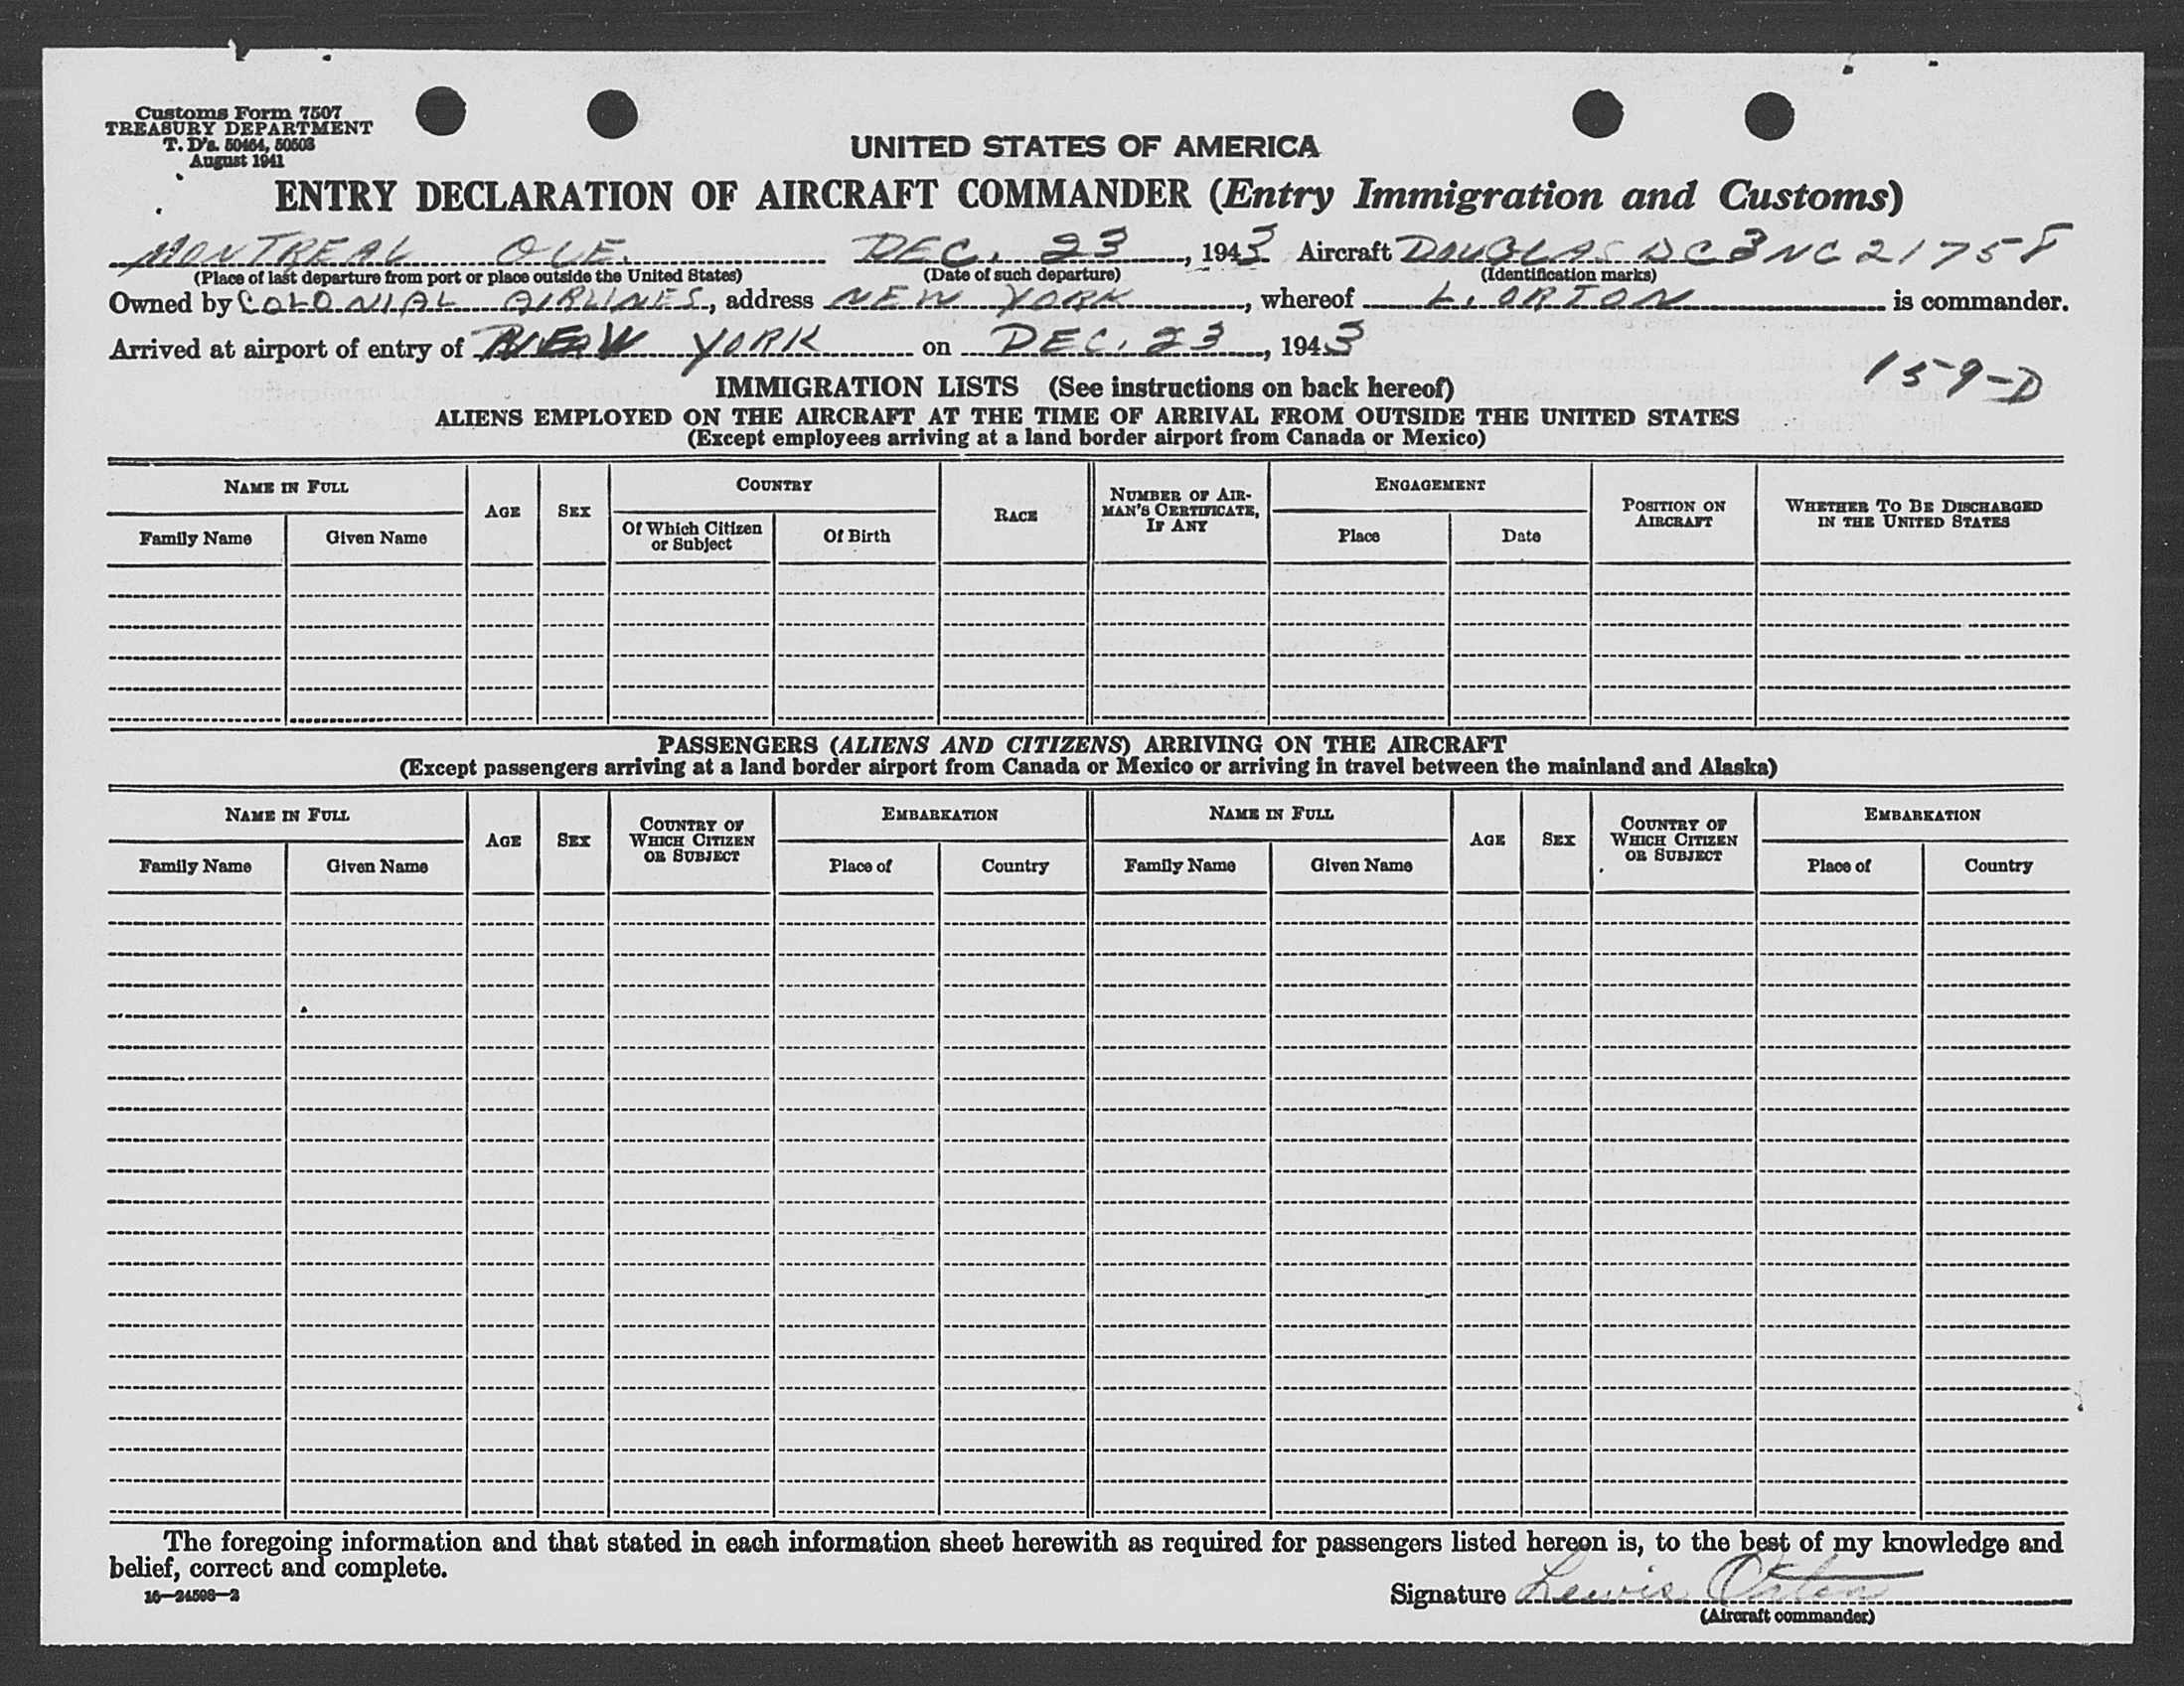 Customs Form 7507
TREASURY DEPARTMENT
T. D's. 50464, 50503
August 1941
UNITED STATES OF AMERICA
ENTRY DECLARATION OF AIRCRAFT COMMANDER (Entry Immigration and Customs)
MONTREAL QUE. DEC. 23, 1943 Aircraft DOUGLAS DC3 NC 21758
(Place of last departure from port or place outside the United States) (Date of such departure) (Identification marks)
Owned by COLONIAL AIRLINES, address NEW YORK, whereof L. ORTON is commander.
Arrived at airport of entry of NEW YORK on DEC. 23, 1943
159-D
IMMIGRATION LISTS (See instructions on back hereof)
ALIENS EMPLOYED ON THE AIRCRAFT AT THE TIME OF ARRIVAL FROM OUTSIDE THE UNITED STATES
(Except employees arriving at a land border airport from Canada or Mexico)
NAME IN FULL
Family Name
Given Name
AGE
SEX
COUNTRY
Of Which Citizen
or Subject
Of Birth
RACE
NUMBER OF AIR-
MAN'S CERTIFICATE,
IF ANY
ENGAGEMENT
Place
Date
POSITION ON
AIRCRAFT
WHETHER TO BE DISCHARGED
IN THE UNITED STATES
PASSENGERS (ALIENS AND CITIZENS) ARRIVING ON THE AIRCRAFT
(Except passengers arriving at a land border airport from Canada or Mexico or arriving in travel between the mainland and Alaska)
NAME IN FULL
Family Name
Given Name
AGE
SEX
COUNTRY OF
WHICH CITIZEN
OR SUBJECT
EMBARKATION
Place of
Country
NAME IN FULL
Family Name
Given Name
AGE
SEX
COUNTRY OF
WHICH CITIZEN
OR SUBJECT
EMBARKATION
Place of
Country
The foregoing information and that stated in each information sheet herewith as required for passengers listed hereon is, to the best of my knowledge and
belief, correct and complete.
16—24598-2
Signature Lewis Orton
(Aircraft commander)